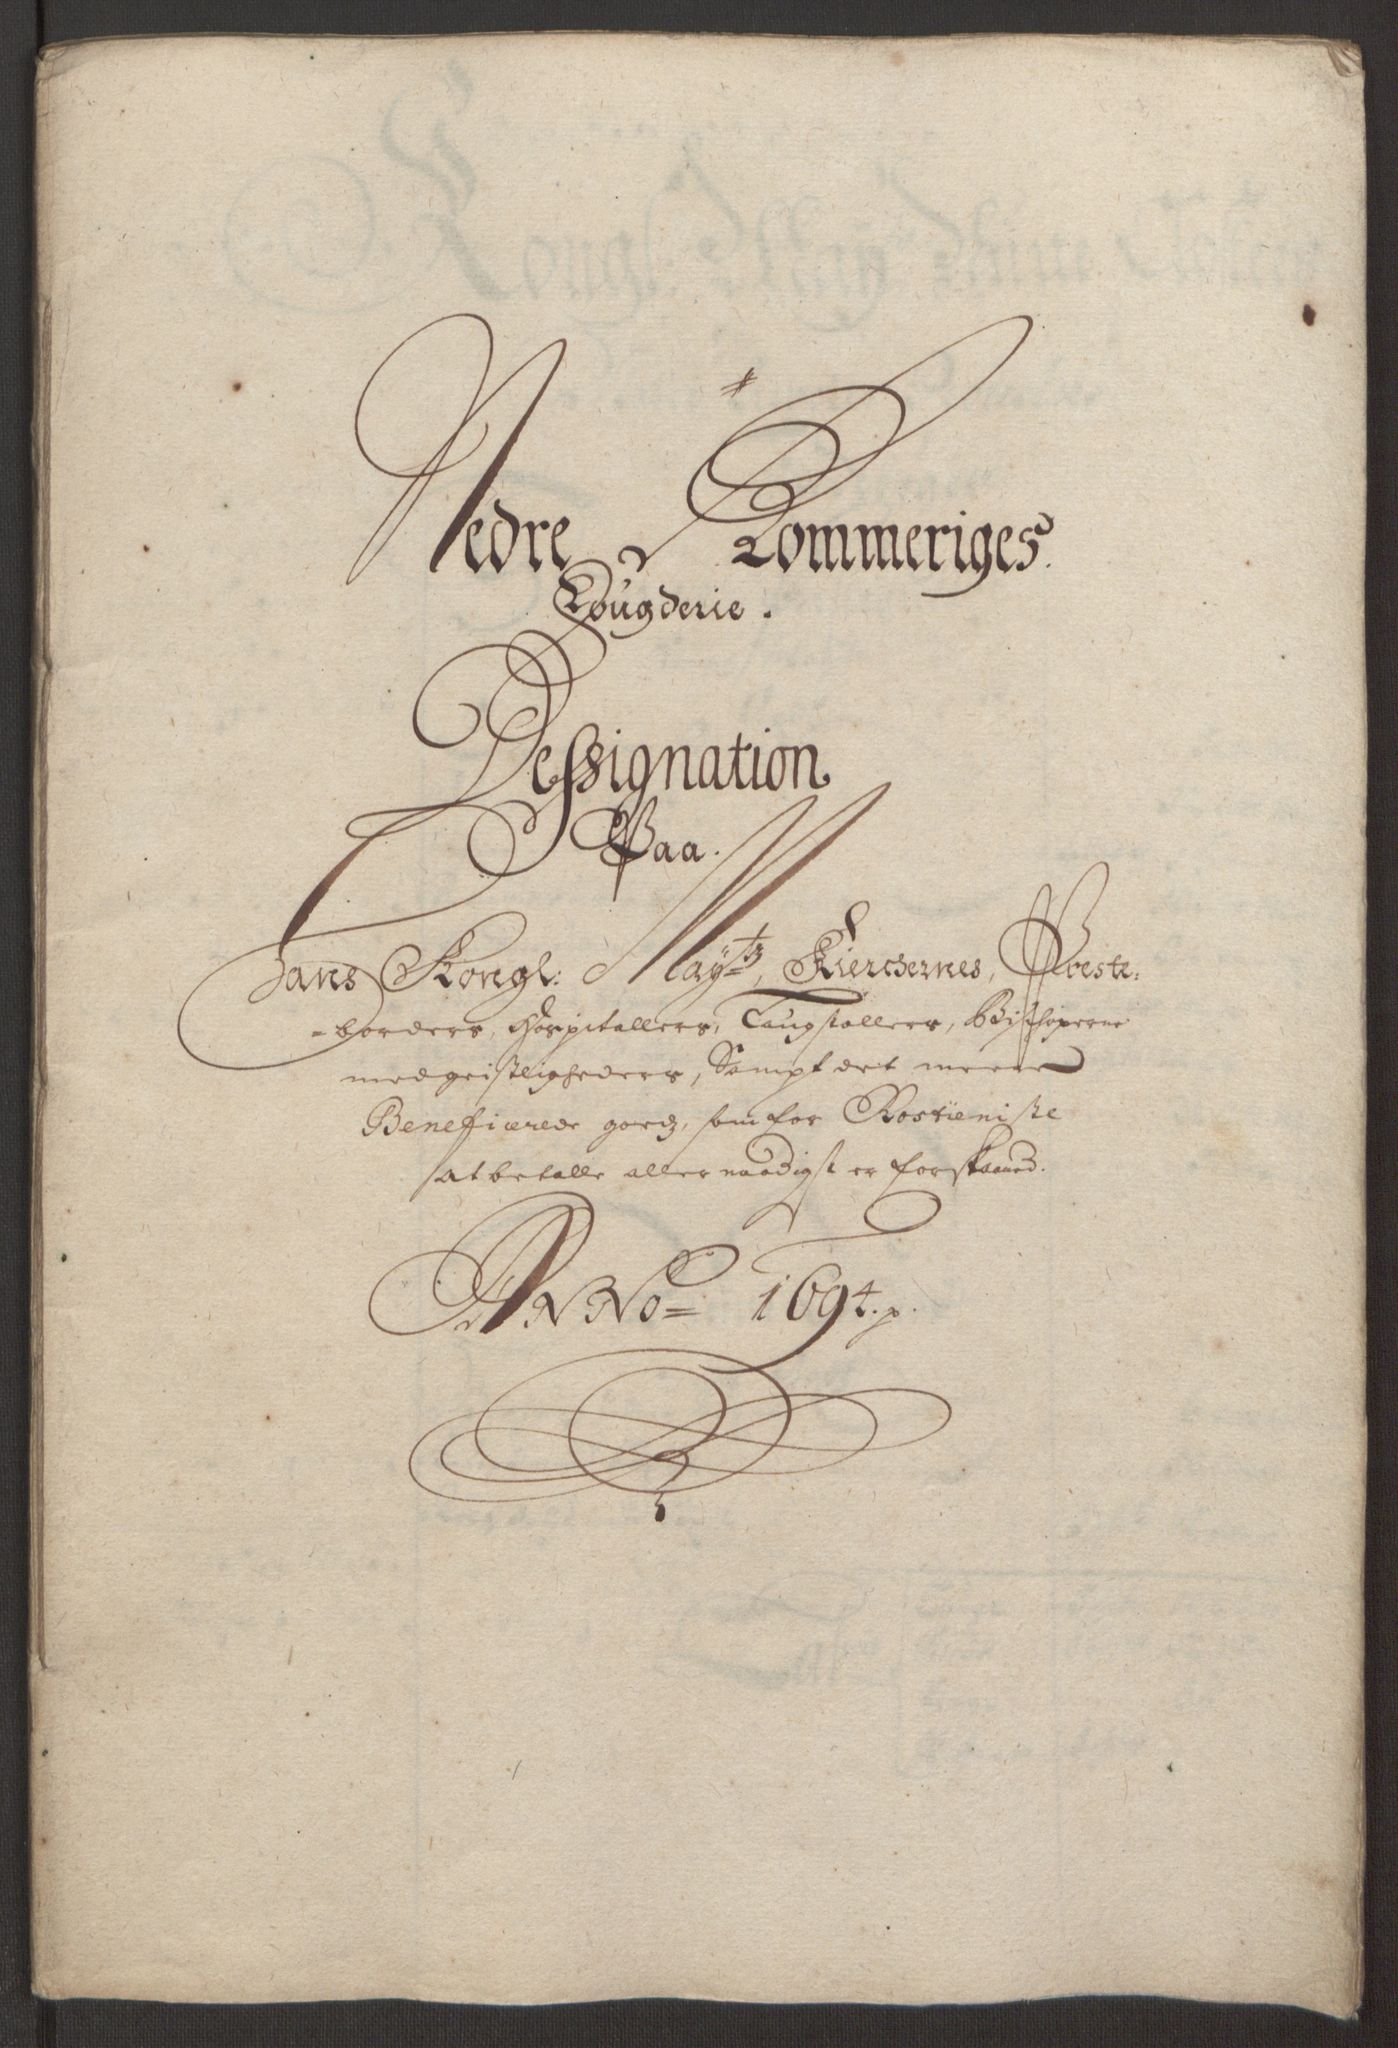 Nedre Rommeriges
Fougderie.
Dessignation
Paa.
Hans Kongl: Mayts, Kierchernes, Præste:
=borders, Hospitallers, Laugstollers, Bischoperne
med geistligheders, Sampt det meere
Beneficerede godz, som for Rostieniste
at betalle aller naadigst er forskaaned.
ANNo= 1694.p.